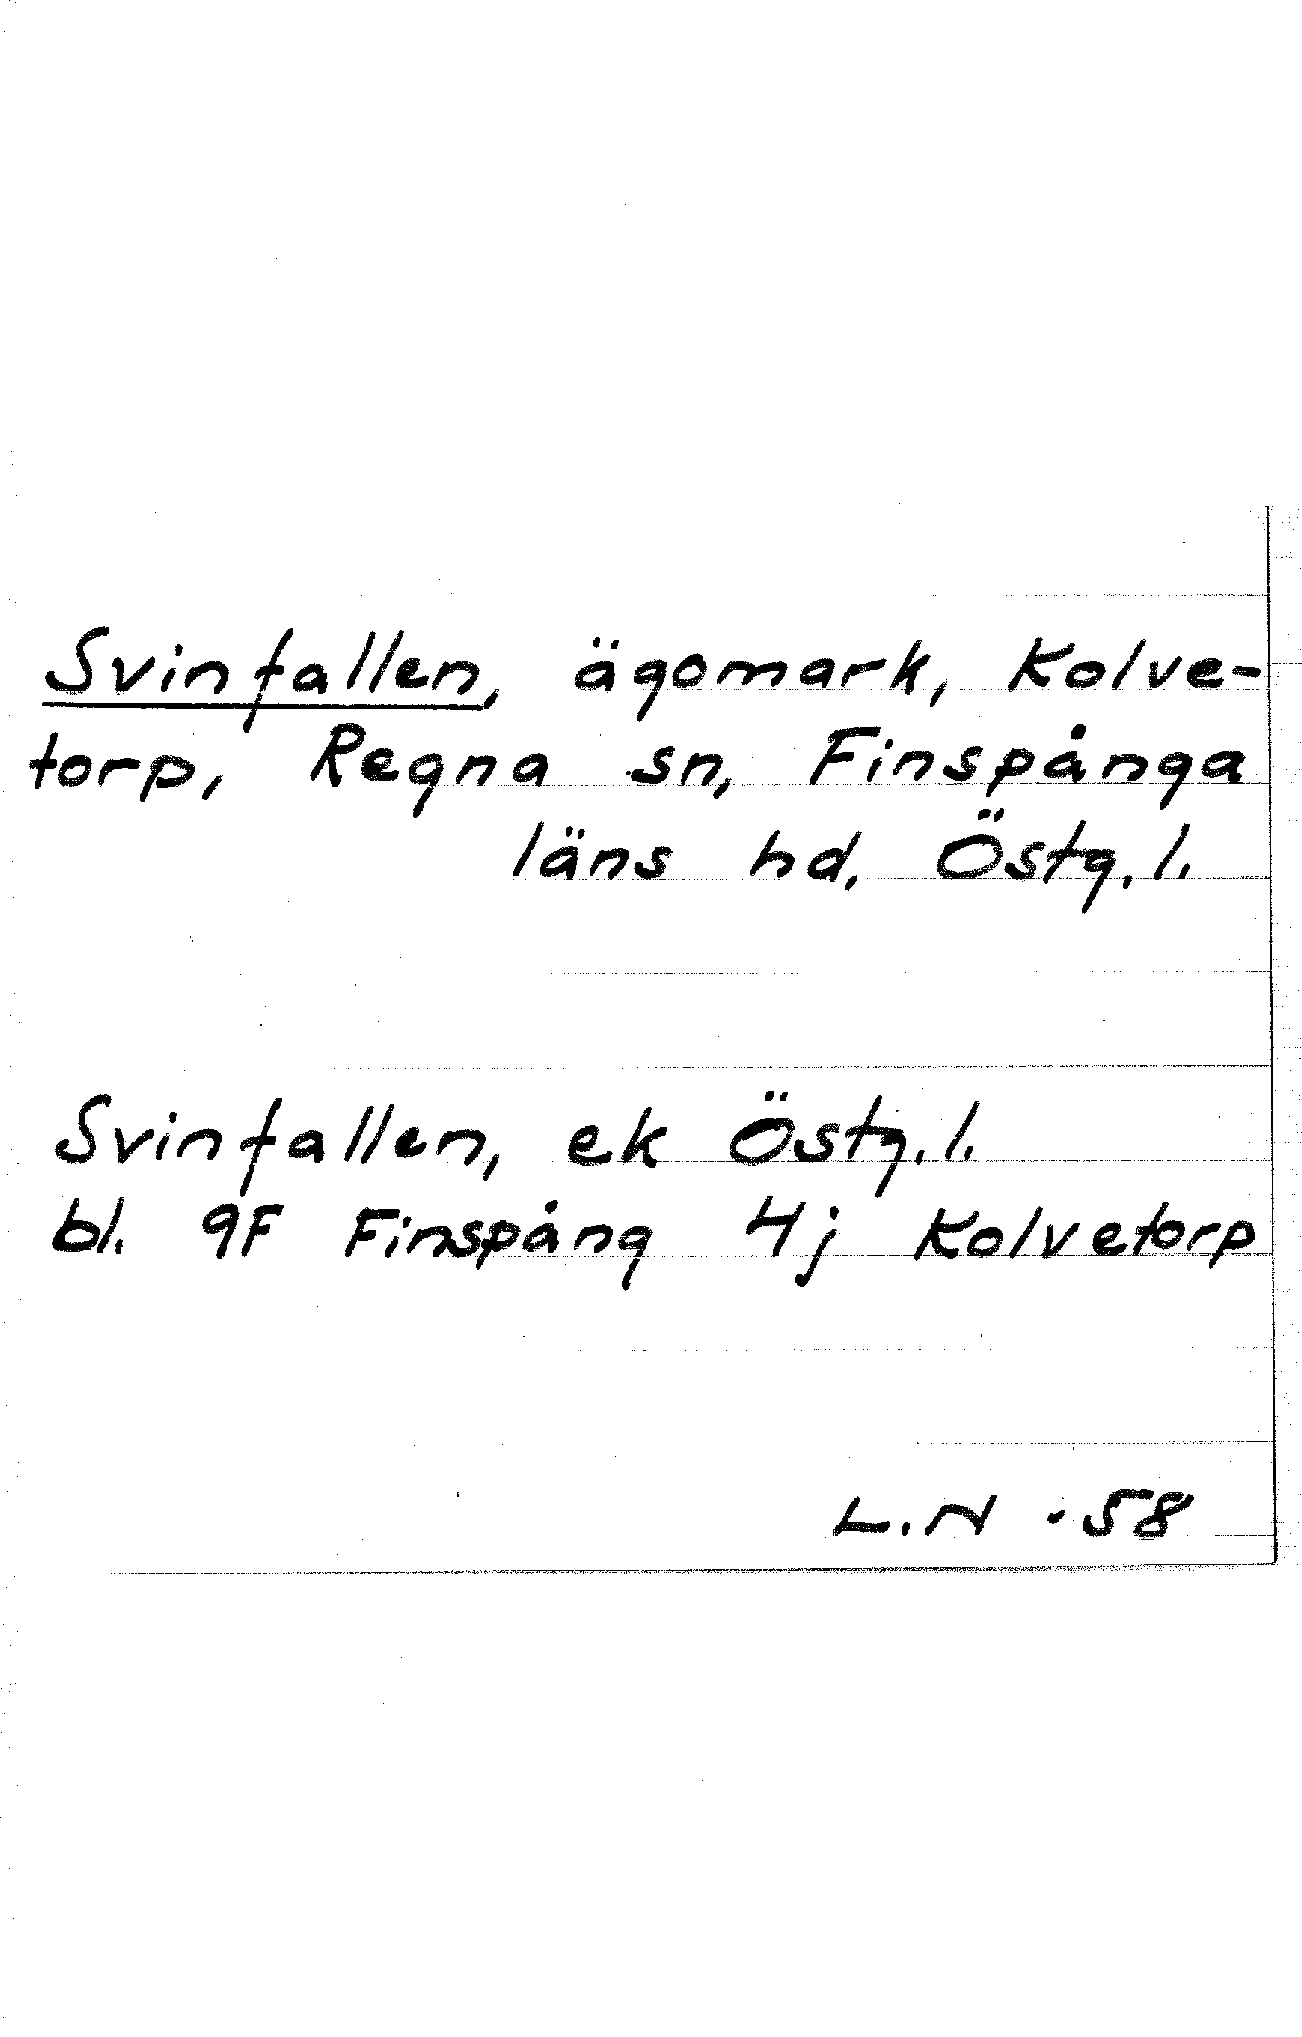 Svinfallen, ägomark, Kolve-
torp, Regna sn, Finspånga
läns hd. Östg. l.
Svinfallen, ek Östg. l.
bl. 9F Finspång 4j Kolvetorp
L.N -58